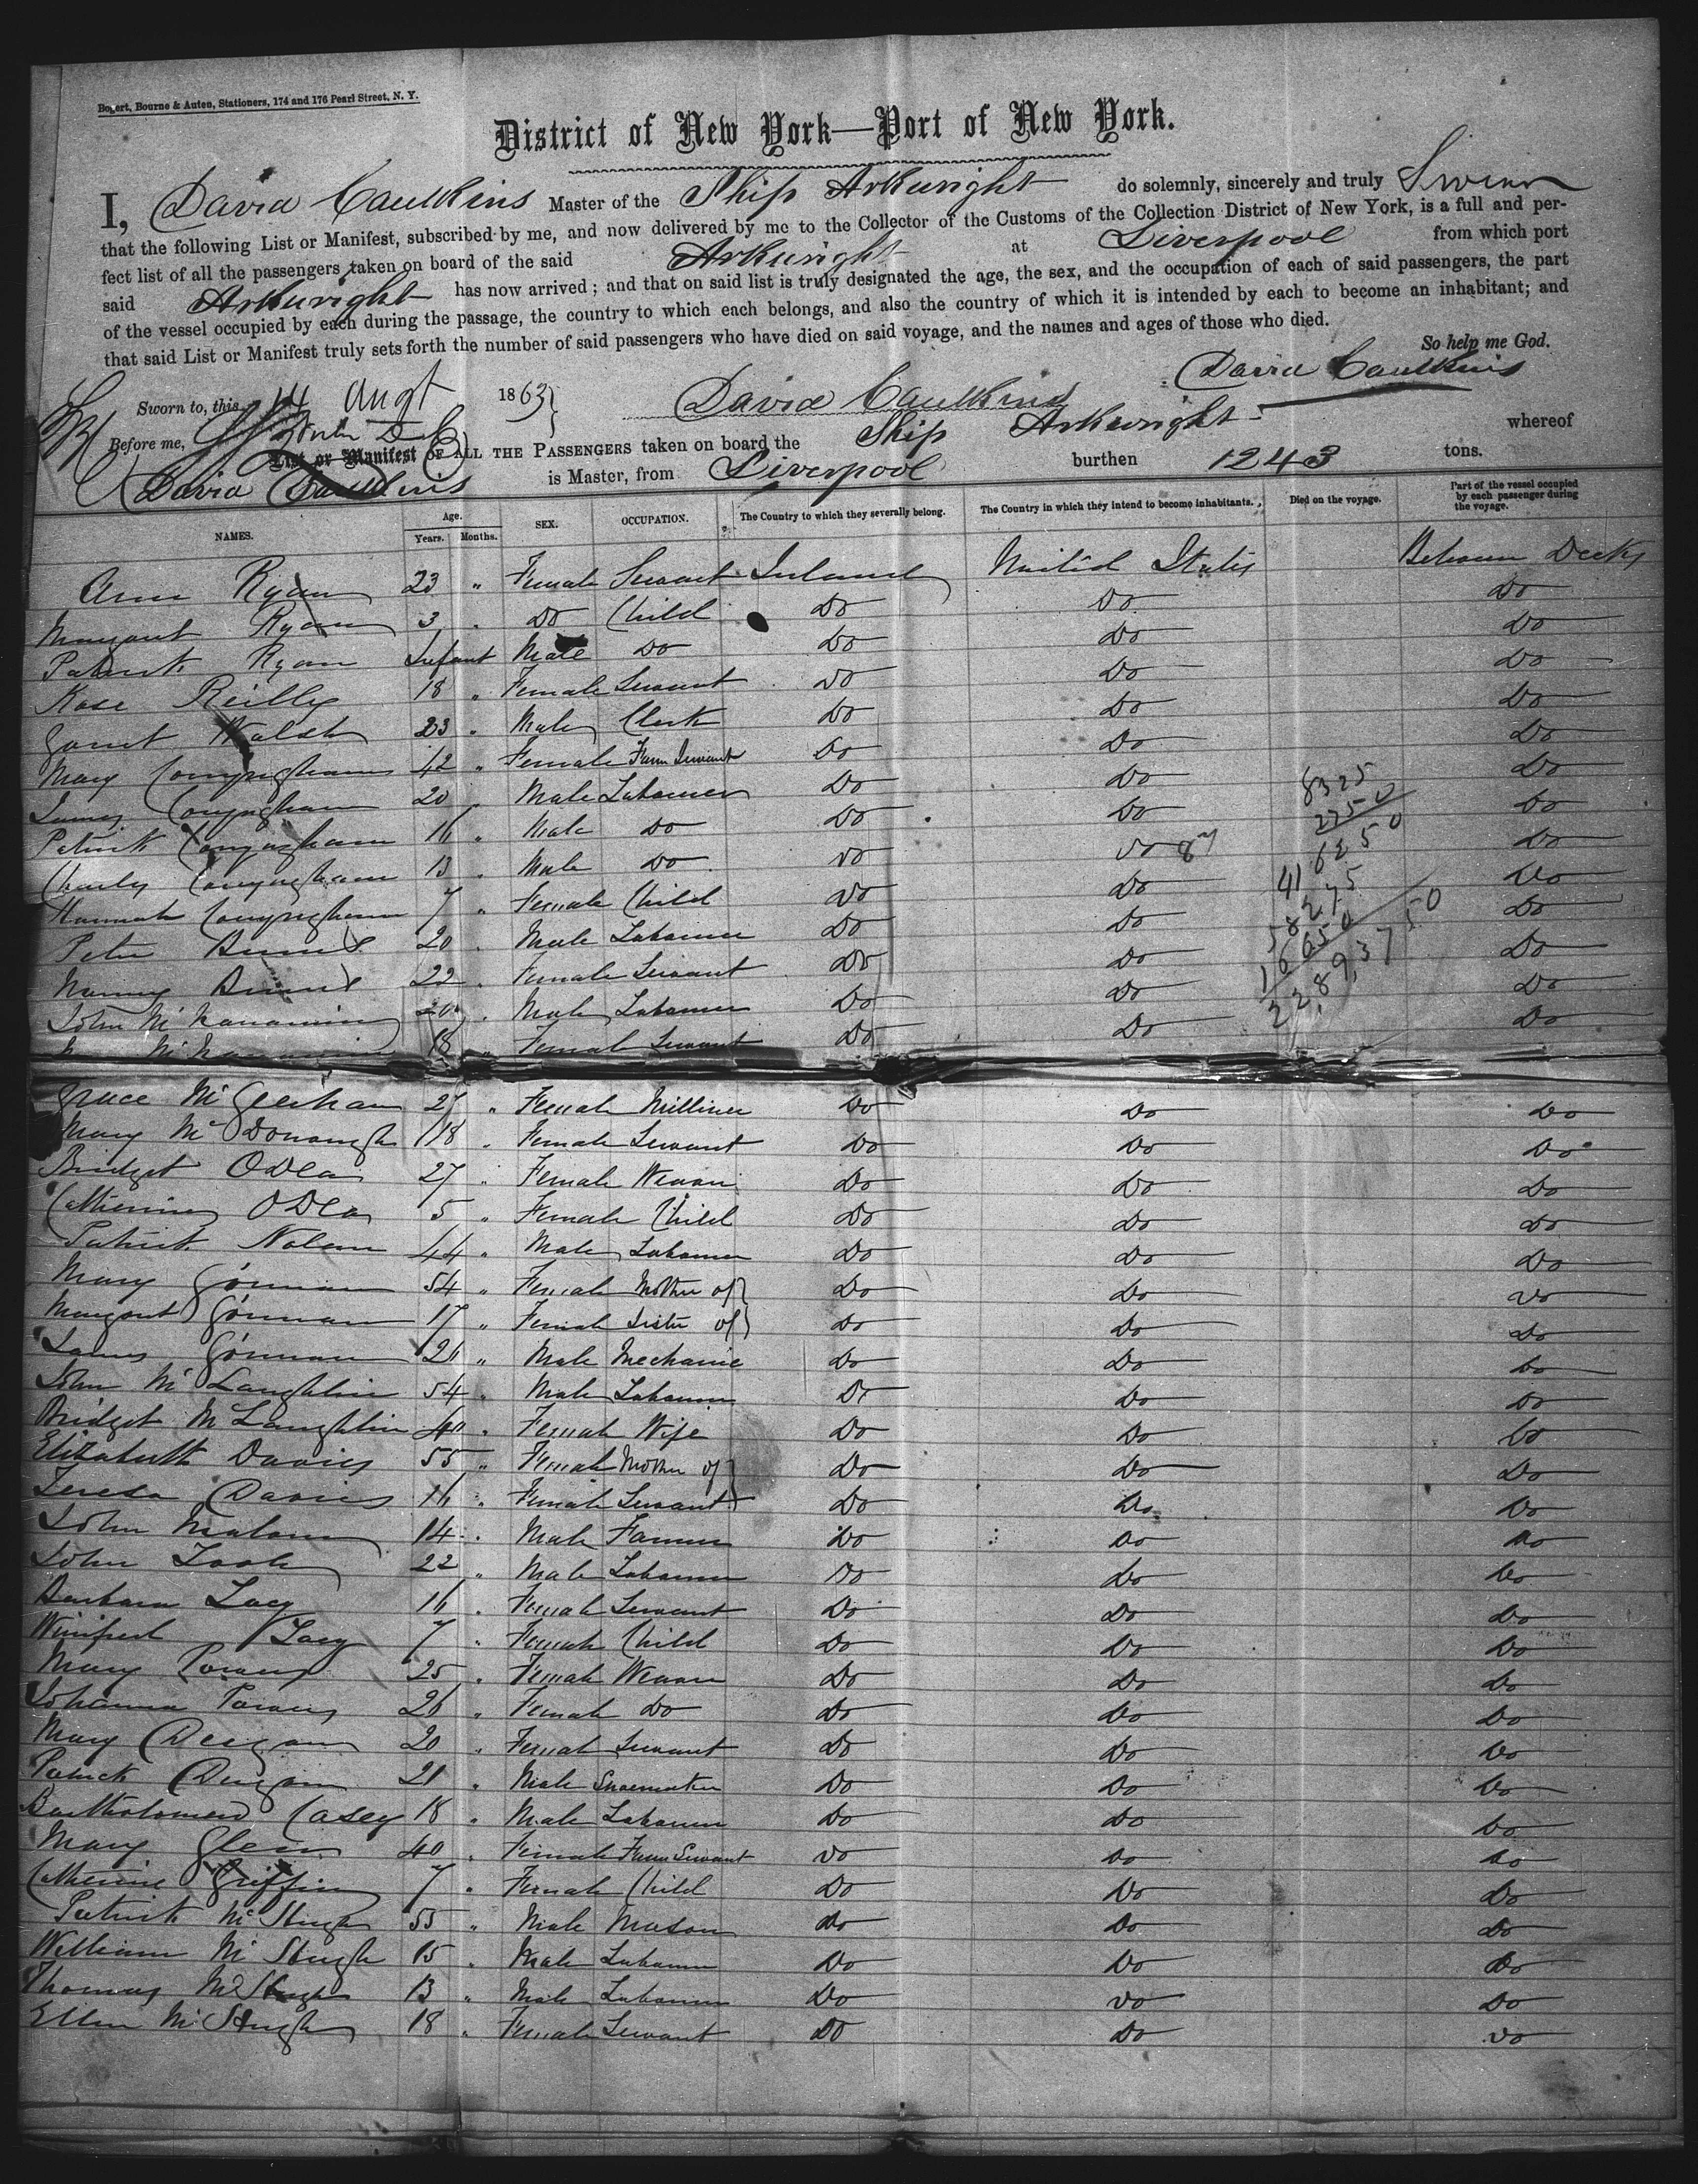 Bogert, Bourne & Auten, Stationers, 174 and 176 Pearl Street, N. Y.
District of New York—Port of New York.
I, David Caulkins Master of the Ship Arkwright do solemnly, sincerely and truly Swear
that the following List or Manifest, subscribed by me, and now delivered by me to the Collector of the Customs of the Collection District of New York, is a full and per-
fect list of all the passengers taken on board of the said Arkwright at Liverpool from which port
said Arkwright has now arrived; and that on said list is truly designated the age, the sex, and the occupation of each of said passengers, the part
of the vessel occupied by each during the passage, the country to which each belongs, and also the country of which it is intended by each to become an inhabitant; and
that said List or Manifest truly sets forth the number of said passengers who have died on said voyage, and the names and ages of those who died.
So help me God.
David Caulkins
Sworn to, this 14 Augt 1863 } David Caulkins
Before me,
List or Manifest OF ALL THE PASSENGERS taken on board the Ship Arkwright whereof
David Caulkins is Master, from Liverpool burthen 1243 tons.
NAMES. Age. Years. Months. SEX. OCCUPATION. The Country to which they severally belong. The Country in which they intend to become inhabitants. Died on the voyage. Part of the vessel occupied by each passenger during the voyage.
Ann Ryan 23 " Female Servant Ireland United States Between Decks
Margaret Ryan 3 " Do Child Do Do Do
Patrick Ryan Infant Male Do Do Do Do
Rose Reilly 18 " Female Servant Do Do Do
Garret Walsh 23 " Male Clerk Do Do Do
Mary Conyngham 42 " Female Farm Servant Do Do Do
James Conyngham 20 " Male Labourer Do Do Do
Patrick Conyngham 16 " Male Do Do Do Do
Charles Conyngham 13 " Male Do Do Do 87 Do
Hannah Conyngham 7 " Female Child Do Do Do
Peter 20 " Male Labourer Do Do Do
22 " Female Servant Do Do Do
John 20 " Male Labourer Do Do Do
18 " Female Servant Do Do Do
8325
2250
41 6250
58275
16650
22,8937 50
Grace McGeehan 27 " Female Milliner Do Do Do
Mary McDonough 18 " Female Servant Do Do Do
Bridget ODea 27 " Female Weaver Do Do Do
Catherine ODea 5 " Female Child Do Do Do
Patrick Nolan 44 " Male Labourer Do Do Do
Mary Gorman 54 " Female Mother of } Do Do Do
Margaret Gorman 17 " Female Sister of } Do Do Do
James Gorman 26 " Male Mechanic Do Do Do
John McLaughlin 54 " Male Labourer Do Do Do
Bridget McLaughlin 40 " Female Wife Do Do Do
Elizabeth Davies 55 " Female Mother of } Do Do Do
Teresa Davies 16 " Female Servant } Do Do Do
John 14 " Male Farmer Do Do Do
John 22 " Male Labourer Do Do Do
Barbara Lacy 16 " Female Servant Do Do Do
Winifred Lacy 7 " Female Child Do Do Do
Mary 25 " Female Weaver Do Do Do
Johanna 26 " Female Do Do Do Do
Mary Deegan 20 " Female Servant Do Do Do
Patrick Deegan 21 " Male Shoemaker Do Do Do
Bartholomew Casey 18 " Male Labourer Do Do Do
Mary Glenn 40 " Female Farm Servant Do Do Do
Catherine Griffin 7 " Female Child Do Do Do
Patrick McHugh 55 " Male Mason Do Do Do
William McHugh 15 " Male Labourer Do Do Do
Thomas McHugh 13 " Male Labourer Do Do Do
Ellen McHugh 18 " Female Servant Do Do Do